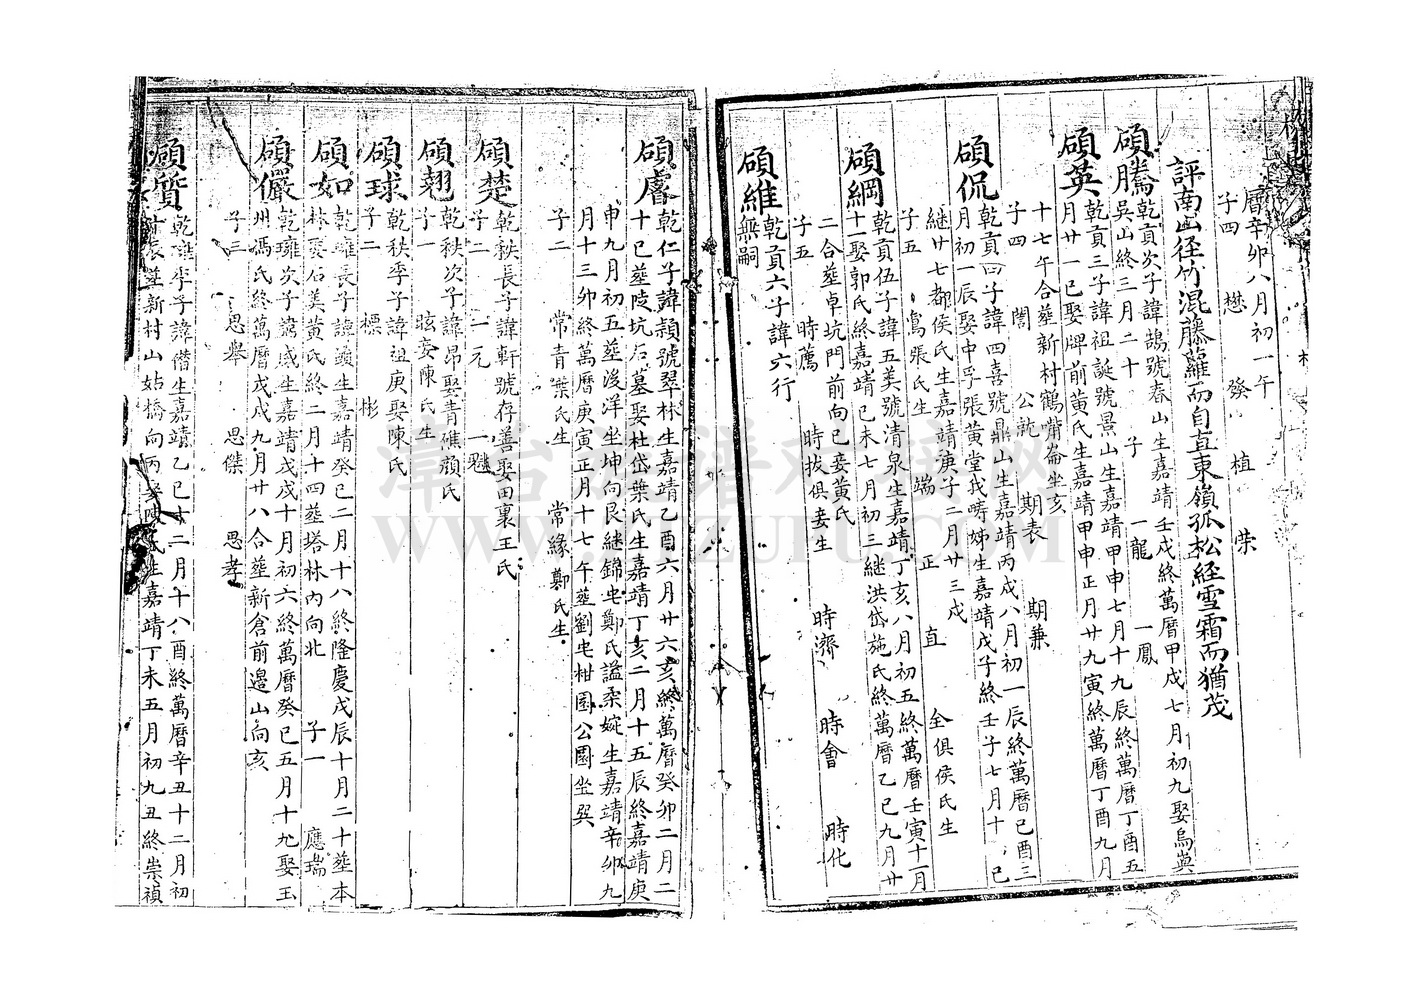 曆辛卯八月初一午
子四 懋發 植 榮
評南山径竹混藤蘿而自直東嶺孤松経雪霜而猶茂
碩騰 乾貢次子諱鵠號春山生嘉靖壬戌終萬曆甲戌七月初九娶烏㠘
吳山終三月二十 子 一龍 一鳳
碩英 乾貢三子諱祖誕號景山生嘉靖甲申七月十九辰終萬曆丁酉五
月廿一巳娶牌前黃氏生嘉靖甲申正月廿九寅終萬曆丁酉九月
十七午合塟新村鶴嘴崙坐亥
子四 誾 公乾 期表 期兼
碩侃 乾貢四子諱四喜號鼎山生嘉靖丙戌八月初一辰終萬曆己酉三
月初一辰娶中孚張黃堂我疇姊生嘉靖戊子終壬子七月十八巳
継廿七都侯氏生嘉靖庚子二月廿三戌
子五 寯張氏生 端 正 直 全俱侯氏生
碩綱 乾貢伍子諱五美號清泉生嘉靖丁亥八月初五終萬曆壬寅十一月
十一娶郭氏終嘉靖己未七月初三継洪岱施氏終萬曆乙巳九月廿
二合塟卓坑門前向巳妾黃氏
子五 時薦 時拔俱妾生 時濟 時會 時化
碩維 乾貢六子諱六行
無嗣
碩睿 乾仁子諱頴號翠林生嘉靖乙酉六月廿六亥終萬曆癸卯二月二
十巳塟陂坑石墓娶杜岱葉氏生嘉靖丁亥二月十五辰終嘉靖庚
申九月初五塟後洋坐坤向艮継錦宅鄭氏謚柔婉生嘉靖辛卯九
月十三卯終萬曆庚寅正月十七午塟劉宅柑園公園坐巽
子二 常青葉氏生 常緣鄭氏生
碩楚 乾秩長子諱軒號存善娶田裏王氏
子二 一元 一魁
碩翹 乾秩次子諱昂娶青礁顏氏
子一 昡妾陳氏生
碩球 乾秩季子諱祖庚娶陳氏
子二 標 彬
碩如 乾雍長子諱頭生嘉靖癸巳二月十八終隆慶戊辰十月二十塟本
林娶石美黃氏終二月十四塟塔林內向北 子一 應瑞
碩儼 乾雍次子諱感生嘉靖戊戌十月初六終萬曆癸巳五月十九娶玉
州馮氏終萬曆戊戌九月廿八合塟新倉前邉山向亥
子三 思舉 思傑 思孝
碩質 乾雍季子諱僣生嘉靖乙巳十二月十八酉終萬曆辛丑十二月初
廿辰塟新村山姑橋向丙娶陳氏生嘉靖丁未五月初九丑終崇禎
漳台族谱对接网
WWW.ZTZUPU.COM